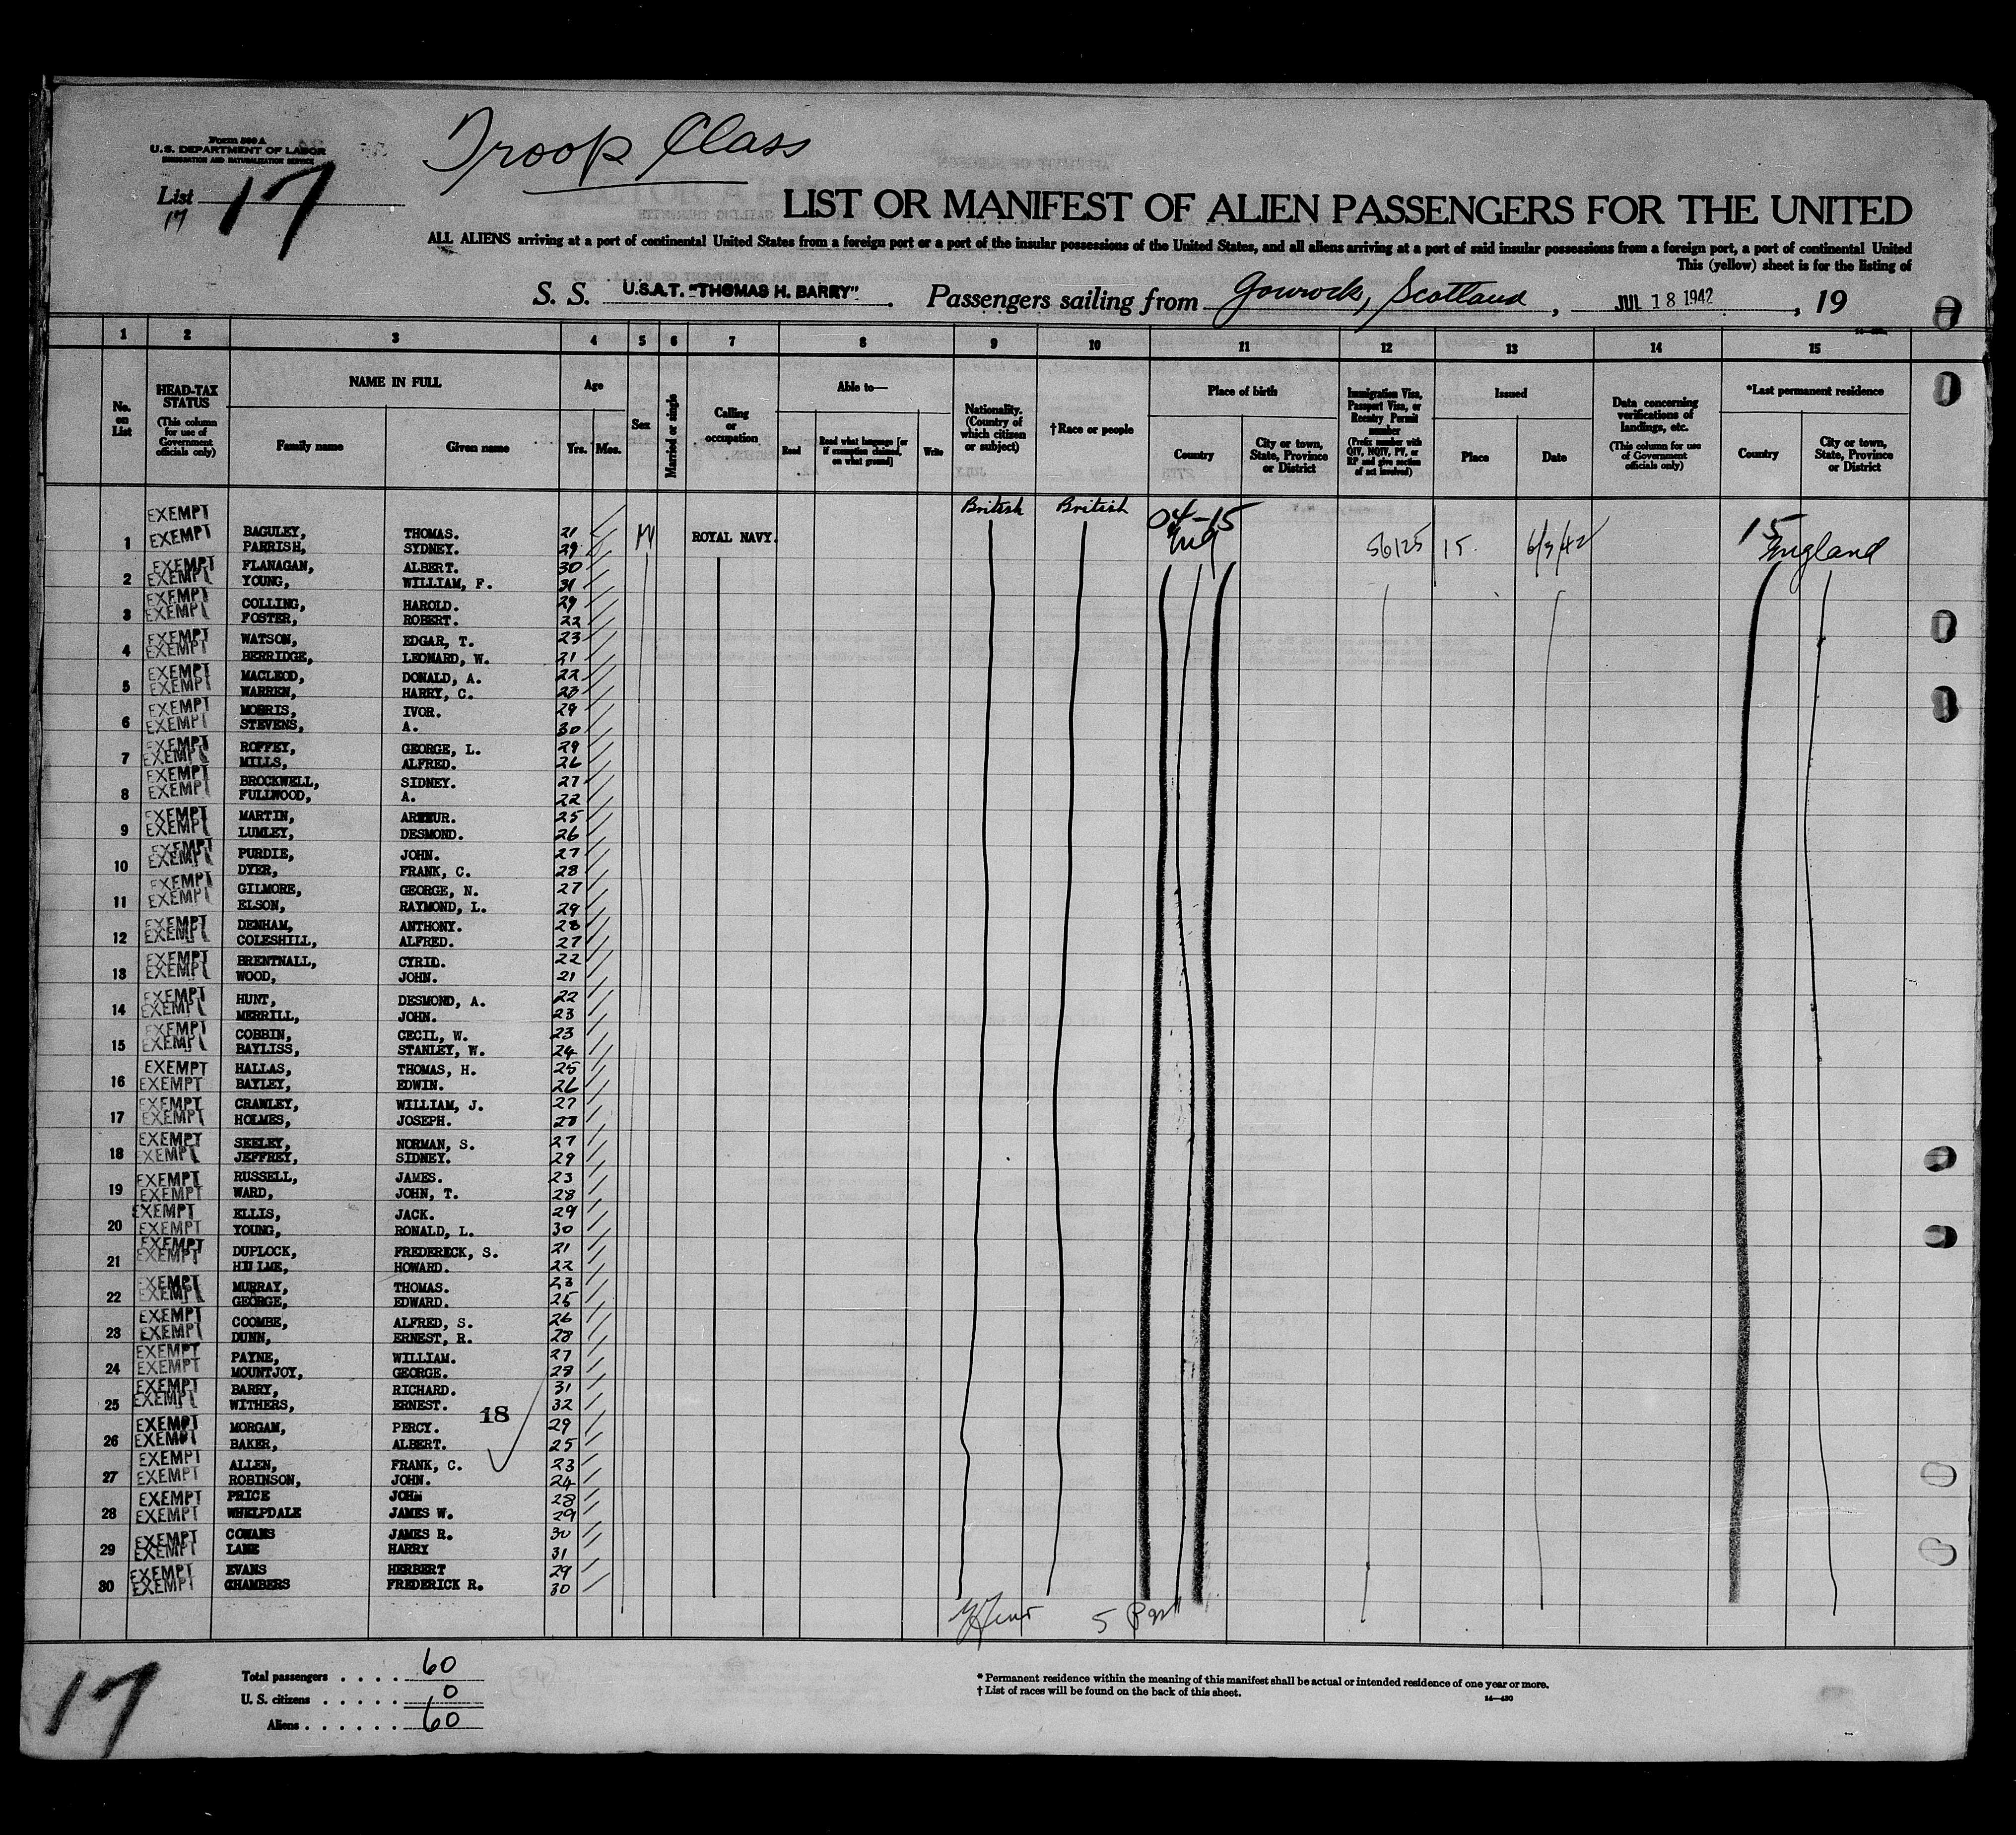 Form 500 A
U.S. DEPARTMENT OF LABOR
IMMIGRATION AND NATURALIZATION SERVICE
Troop Class
List 17
17
LIST OR MANIFEST OF ALIEN PASSENGERS FOR THE UNITED
ALL ALIENS arriving at a port of continental United States from a foreign port or a port of the insular possessions of the United States, and all aliens arriving at a port of said insular possessions from a foreign port, a port of continental United
This (yellow) sheet is for the listing of
S. S. U.S.A.T. "THOMAS H. BARRY". Passengers sailing from Gourock, Scotland, JUL 18 1942, 19
1 2 3 4 5 6 7 8 9 10 11 12 13 14 15
No. on List
HEAD-TAX STATUS
(This column for use of Government officials only)
NAME IN FULL
Family name Given name
Age
Yrs. Mos.
Sex
Married or single
Calling or occupation
Able to—
Read
Read what language [or if exemption claimed, on what ground]
Write
Nationality. (Country of which citizen or subject)
†Race or people
Place of birth
Country
City or town, State, Province or District
Immigration Visa, Passport Visa, or Reentry Permit number
(Prefix number with QIV, NQIV, PV, or RP and give section of act involved)
Issued
Place Date
Data concerning verifications of landings, etc.
(This column for use of Government officials only)
*Last permanent residence
Country
City or town, State, Province or District
British British 04-15 15
EXEMPT BAGULEY, THOMAS. 21 M ROYAL NAVY. Eng 56125 15. 6/3/42 England
1 EXEMPT PARRISH, SYDNEY. 29
EXEMPT FLANAGAN, ALBERT. 30
2 EXEMPT YOUNG, WILLIAM, F. 31
EXEMPT COLLING, HAROLD. 29
3 EXEMPT FOSTER, ROBERT. 22
EXEMPT WATSON, EDGAR, T. 23
4 EXEMPT BERRIDGE, LEONARD, W. 21
EXEMPT MACLEOD, DONALD, A. 22
5 EXEMPT WARREN, HARRY, C. 23
EXEMPT MORRIS, IVOR. 29
6 EXEMPT STEVENS, A. 30
EXEMPT ROFFEY, GEORGE, L. 29
7 EXEMPT MILLS, ALFRED. 26
EXEMPT BROCKWELL, SIDNEY. 27
8 EXEMPT FULLWOOD, A. 22
EXEMPT MARTIN, ARTHUR. 25
9 EXEMPT LUMLEY, DESMOND. 26
EXEMPT PURDIE, JOHN. 27
10 EXEMPT DYER, FRANK, C. 28
EXEMPT GILMORE, GEORGE, N. 27
11 EXEMPT ELSON, RAYMOND, L. 29
EXEMPT DENHAM, ANTHONY. 28
12 EXEMPT COLESHILL, ALFRED. 27
EXEMPT BRENTNALL, CYRID. 22
13 EXEMPT WOOD, JOHN. 21
EXEMPT HUNT, DESMOND, A. 22
14 EXEMPT MERRILL, JOHN. 23
EXEMPT COBBIN, CECIL, W. 23
15 EXEMPT BAYLISS, STANLEY, W. 24
EXEMPT HALLAS, THOMAS, H. 25
16 EXEMPT BAYLEY, EDWIN. 26
EXEMPT CRAWLEY, WILLIAM, J. 27
17 EXEMPT HOLMES, JOSEPH. 28
EXEMPT SEELEY, NORMAN, S. 27
18 EXEMPT JEFFREY, SIDNEY. 29
EXEMPT RUSSELL, JAMES. 23
19 EXEMPT WARD, JOHN, T. 28
EXEMPT ELLIS, JACK. 29
20 EXEMPT YOUNG, RONALD, L. 30
EXEMPT DUPLOCK, FREDERICK, S. 21
21 EXEMPT HULME, HOWARD. 22
EXEMPT MURRAY, THOMAS. 23
22 EXEMPT GEORGE, EDWARD. 25
EXEMPT COOMBE, ALFRED, S. 26
23 EXEMPT DUNN, ERNEST, R. 28
EXEMPT PAYNE, WILLIAM. 27
24 EXEMPT MOUNTJOY, GEORGE. 28
EXEMPT BARRY, RICHARD. 31
25 EXEMPT WITHERS, ERNEST. 32
18
EXEMPT MORGAM, PERCY. 29
26 EXEMPT BAKER, ALBERT. 25
EXEMPT ALLEN, FRANK, C. 23
27 EXEMPT ROBINSON, JOHN. 24
EXEMPT PRICE JOHN 28
28 EXEMPT WHELPDALE JAMES W. 29
EXEMPT COWANS JAMES R. 30
29 EXEMPT LANE HARRY 31
EXEMPT EVANS HERBERT 29
30 EXEMPT CHAMBERS FREDERICK R. 30
17
Total passengers . . . . 60
U. S. citizens . . . . . 0
Aliens . . . . . . 60
* Permanent residence within the meaning of this manifest shall be actual or intended residence of one year or more.
† List of races will be found on the back of this sheet.
14—430